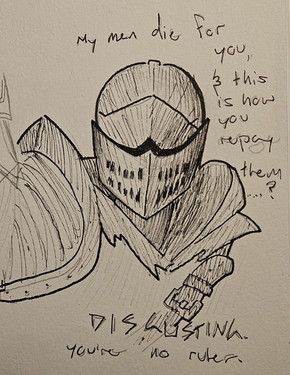 My men die for
you,
& this
is how
you
repay
them
...?
DISGUSTING.
you're no ruler.